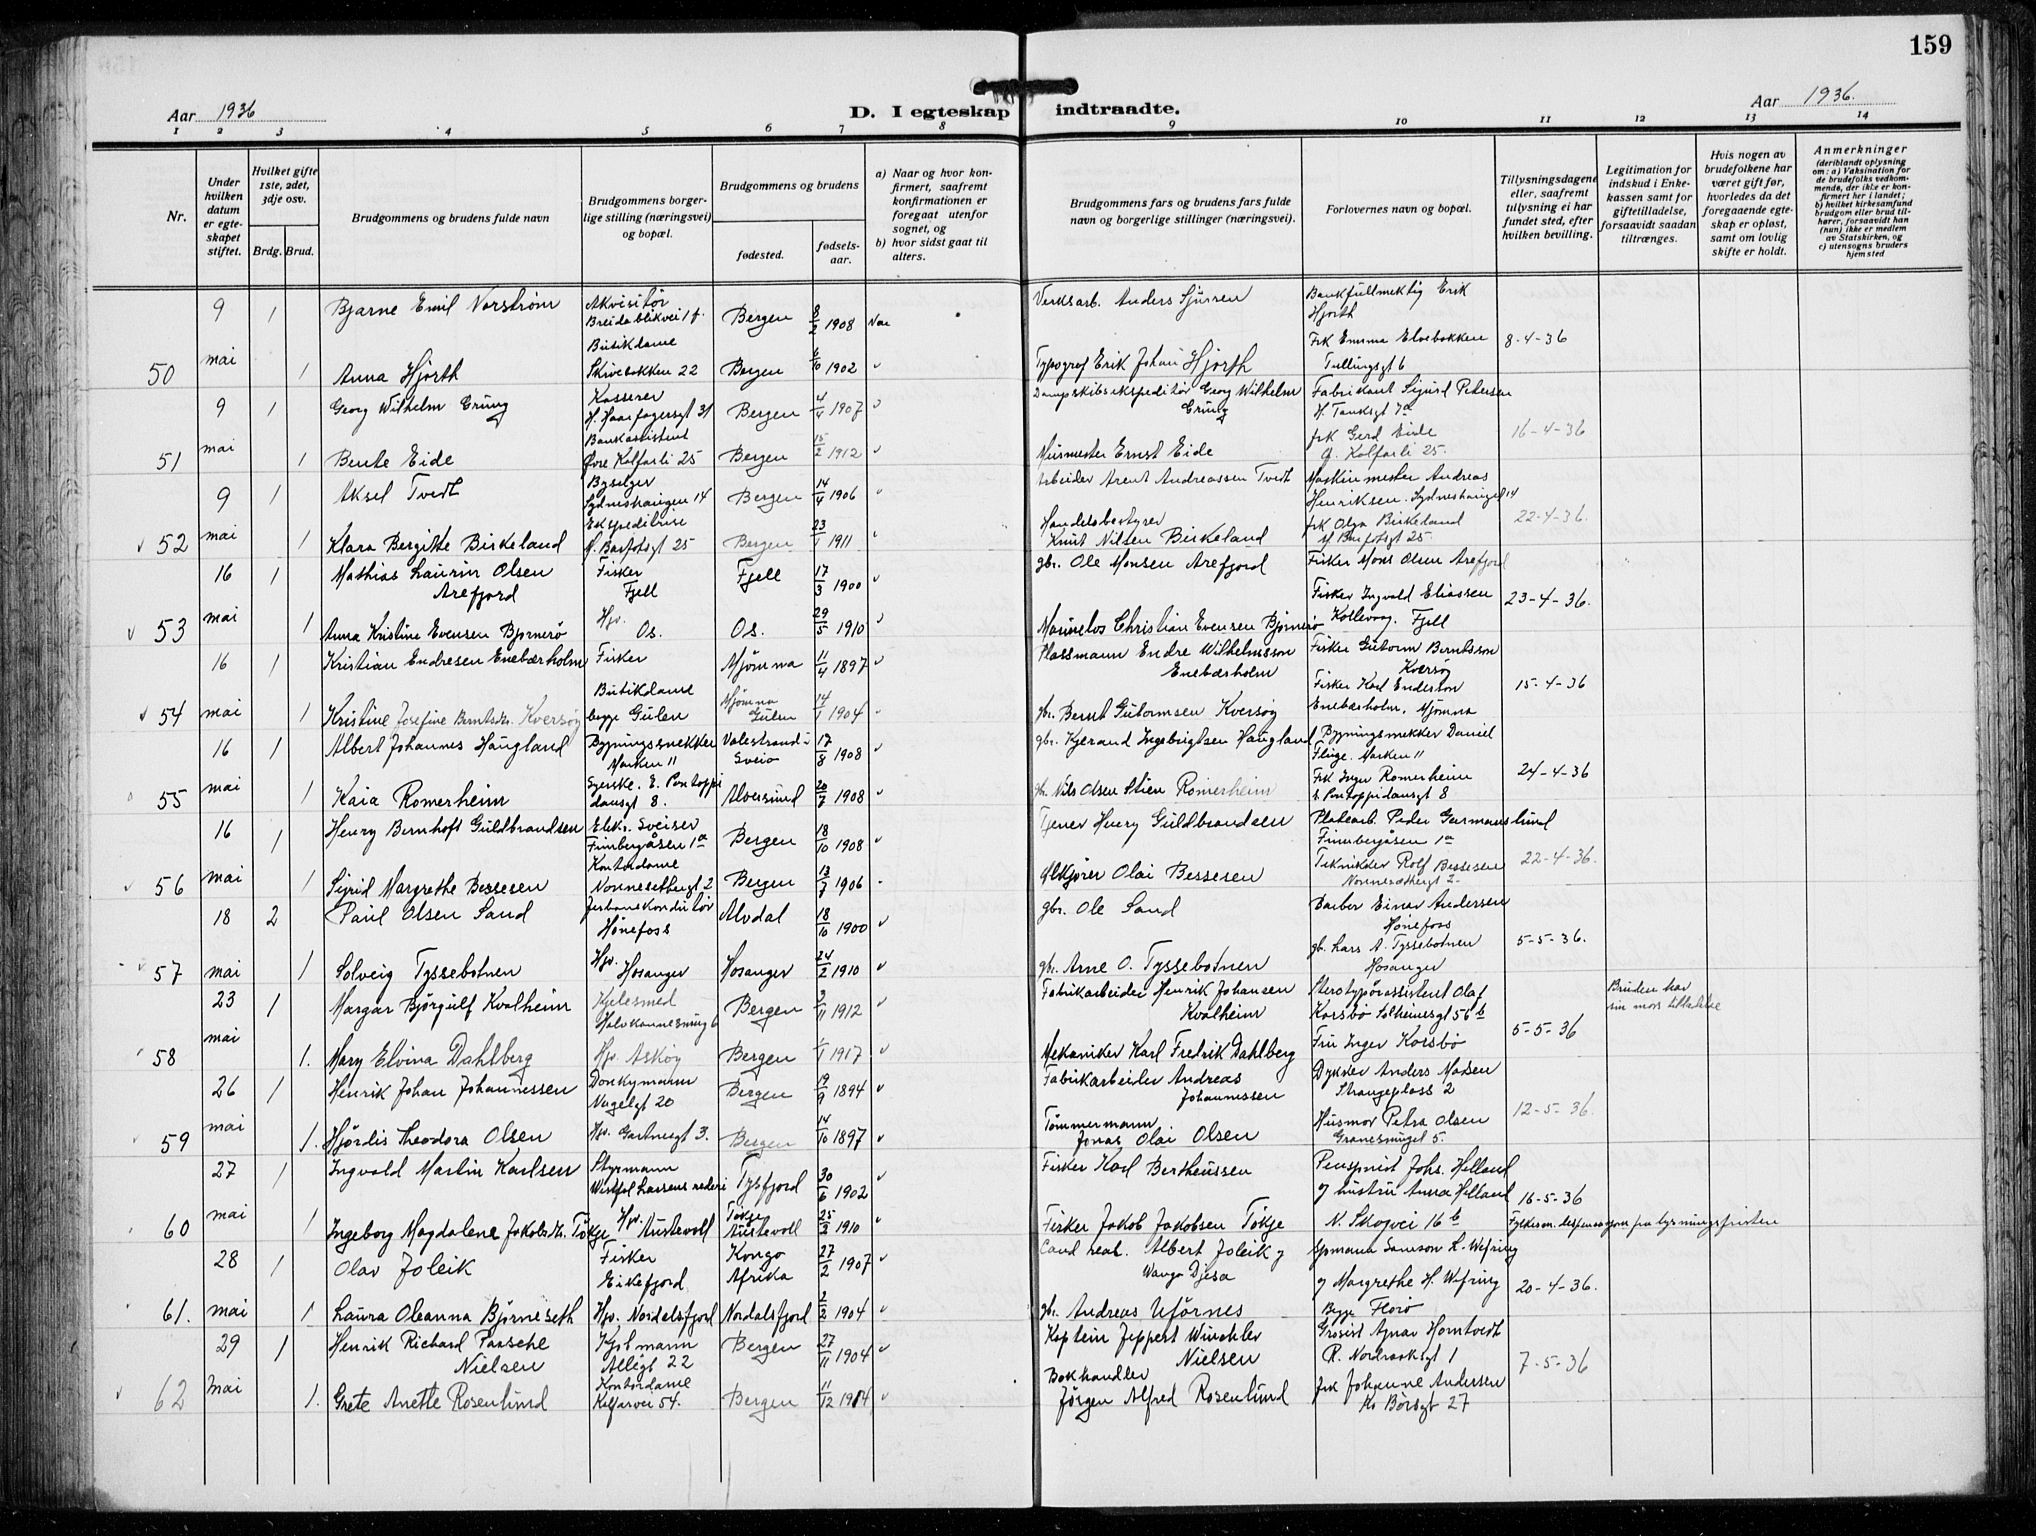 159
Aar 1936
D. I egteskap indtraadte.
Aar 1936.
1 2 3 4 5 6 7 8 9 10 11 12 13 14
Nr.
Under hvilken datum er egteskapet stiftet.
Hvilket gifte 1ste, 2det, 3dje osv.
Brdg. Brud.
Brudgommens og brudens fulde navn
Brudgommens borgerlige stilling (næringsvei) og bopæl.
Brudgommens og brudens
fødested.
fødselsaar.
a) Naar og hvor konfirmert, saafremt konfirmationen er foregaat utenfor sognet, og
b) hvor sidst gaat til alters.
Brudgommens fars og brudens fars fulde navn og borgerlige stillinger (næringsvei).
Forlovernes navn og bopæl.
Tillysningsdagene eller, saafremt tillysning ei har fundet sted, efter hvilken bevilling.
Legitimation for indskud i Enkekassen samt for giftetilladelse, forsaavidt saadan tiltrænges.
Hvis nogen av brudefolkene har været gift før, hvorledes da det foregaaende egteskap er opløst, samt om lovlig skifte er holdt.
Anmerkninger
(deriblandt oplysning om: a) Vaksination for de brudefolks vedkommende, der ikke er konfirmert her i landet; b) hvilket kirkesamfund brudgom eller brud tilhører, forsaavidt han (hun) ikke er medlem av Statskirken, og c) utensogns bruders hjemsted
9 1 Bjarne Emil Norstrøm Akvisitør Breidablikvei 1 f. Bergen 8/2 1908 Verksarb. Anders Sjursen Bankfullmektig Erik Hjorth
50 mai 1 Anna Hjorth Butikdame Skivebakken 22 Bergen 6/10 1902 Typograf Erik Johan Hjorth Frk Emma Elvebakken Tullingsgt 6 8-4-36
9 1 Georg Wilhelm Grung Kasserer H. Haarfagersgt 31 Bergen 4/4 1907 Dampskibsekspeditør Georg Wilhelm Grung Fabrikant Sigurd Pedersen H. Tanksgt 7a
51 mai 1 Bente Eide Bankassistent Øvre Kalfarli 25 Bergen 15/2 1912 Murmester Ernst Eide frk Gerd Eide Ø. Kalfarli 25. 16-4-36
9 1 Aksel Tvedt Byselger Sydneshaugen 14 Bergen 14/4 1906 Arbeider Arent Andreassen Tvedt Maskinmester Andreas Henriksen. Sydneshaugen 14
52 mai 1 Klara Bergitte Birkeland Ekspeditrise Bergen 23/1 1911 Handelsbestyrer Knut Nilsen Birkeland frk Olga Birkeland 22-4-36.
16 1 Mathias Laurin Olsen Arefjord Fisker Fjell Fjell 17/3 1900 gbr. Ole Monsen Arefjord Fisker Mons Olsen Arefjord
53 mai 1 Anna Kristine Evensen Bjørnerø Hjv. Os. Os. 29/5 1910 Christian Evensen Bjørnerø Fisker Ingvald Eliassen Kollevaag. Fjell 23-4-36.
16 1 Kristian Endresen Enebærholm Fisker Mjømna 11/4 1897 Plassmann Endre Wilhelmsson Enebærholm Fisker Gutorm Berntsson Kversøy
54 mai 1 Kristine Josefine Berntsdtr. Kversøy Butikdame begge Gulen Mjømna Gulen 14/1 1904 gbr. Bernt Gutormsen Kversøy Fisker Karl Enderson Enebærholm. Mjømna 15-4-36
16 1 Albert Johannes Haugland Bygningssnekker Marken 11 Valestrand i Sveio 17/8 1908 gbr. Kjerand Ingebrigtsen Haugland Bygningsnekker Daniel Fluge. Marken 11
55 mai 1 Kaia Romerheim Syerske. E. Pontoppidansgt 8. Alversund 20/7 1908 gbr. Nils Olsen Stien Romerheim Frk Inger Romerheim E. Pontoppidansgt 8 24-4-36
16 1 Henry Bernhoft Guldbrandsen Elek. Sveiser Finnbergåsen 1a Bergen 18/10 1908 Tjener Henry Guldbrandsen Platearb. Peder Garmannslund Finnbergåsen 1a
56 mai 1 Sigrid Margrethe Bessesen Kontordame Nonnesetergt 2 Bergen 13/7 1906 Ølkjører Olai Bessesen Tekniker Rolf Bessesen Nonnesætergt 2 22-4-36.
18 2 Paul Olsen Sand Jerbanekonduktør Hønefoss Alvdal 18/10 1900 gbr. Ole Sand Barber Einar Andersen Hønefoss
57 mai 1 Solveig Tyssebotnen Hjv. Hosanger Hosanger 24/2 1910 gbr. Arne O. Tyssebotnen gb. Lars A. Tyssebotnen Hosanger 5-5-36.
23 1 Margar Bjørgulf Kvalheim Kjelesmed Bergen 3/11 1912 Fabrikarbeider Henrik Johansen Kvalheim Sterotypørassistent Olaf Korsbø Solheimsgt 56b Bruden har sin mors tilladelse
58 mai 1. Mary Elvina Dahlberg Hjv. Askøy Bergen 1/1 1917 Mekaniker Karl Fredrik Dahlberg Fru Inger Korsbø 5-5-36
26 1 Henrik Johan Johannessen Donkymann Nygelgt 20 Bergen 19/9 1894 Fabrikarbeider Andreas Johannessen Dykker Anders Madsen Strangeplass 2
59 mai 1. Hjørdis Theodora Olsen Hjv. Gartnergt 3. Bergen 14/10 1897 Tømmermann Jonas Olai Olsen Husmor Petra Olsen Granesmuget 5. 12-5-36.
27 1 Ingvald Martin Karlsen Styrmann Westfal Larsens rederi Tysfjord 30/6 1902 Fisker Karl Bertheussen Johs. Helland og hustru Anna Helland
60 mai 1 Ingeborg Magdalene Jakobsdtr. Tökje Hjv. Austevoll Tøkje Austevoll 25/3 1910 Fisker Jakob Jakobsen Tökje N. Skogvei 16b 16-5-36 Fylkesm. dispensasjon fra lysningsfristen
28 1 Olav Joleik Fisker Eikefjord Kongo Afrika 27/2 1907 Cand real. Albert Joleik og Wango Djesa Samson L. Wefring
61. mai 1 Laura Oleanna Bjørneseth Hjv. Nordalsfjord Nordalsfjord 2/2 1904 gbr. Andreas og Margrethe H. Wefring Begge Florø 20-4-36.
29 1 Henrik Richard Paasche Nielsen Kjøbmann Allegt 22 Bergen 27/11 1904 Kaptein Jeppert Winchler Nielsen Grosist Agnar Homtvedt R. Nordraaksgt 1
62 Mai 1. Grete Anette Rosenlund Kontordame Kalfarvei 54. Bergen 11/12 1914 Bokhandler Jørgen Alfred Rosenlund frk Johanne Andersen Børsgt 27 7-5-36